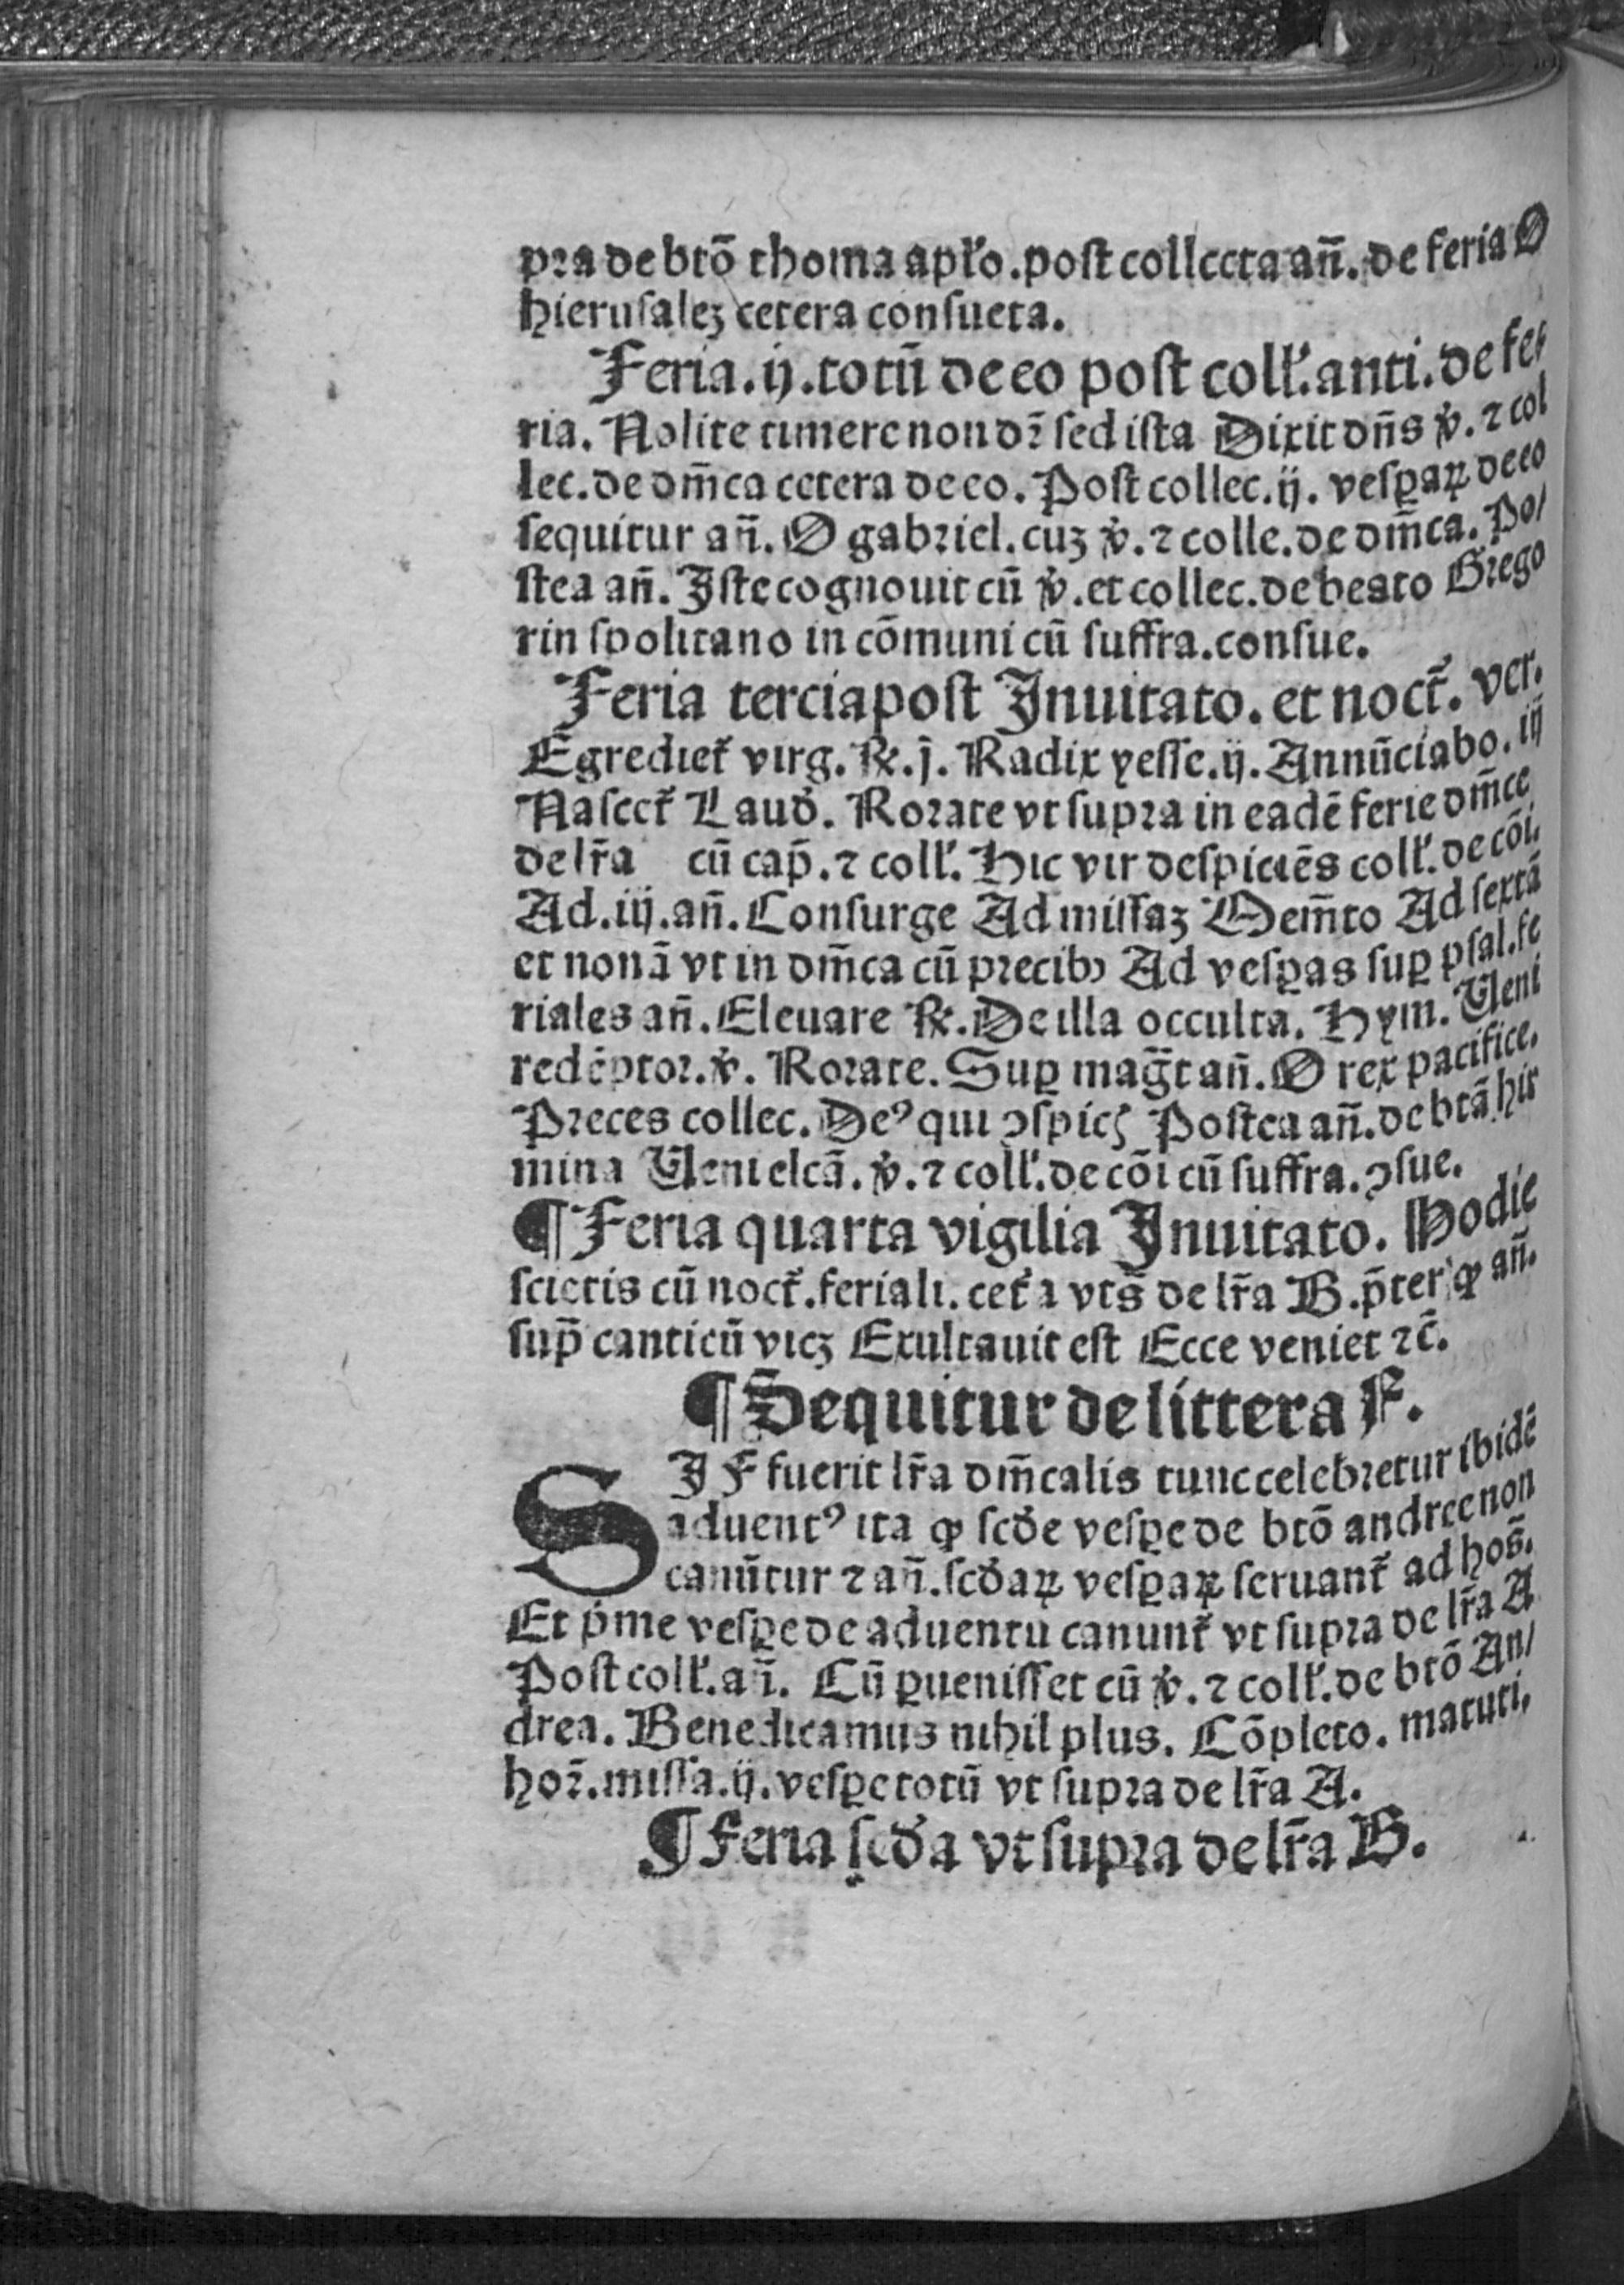 pꝛa de btō thoma apło.post collecta añ. de feria O
hieruſaleꝫ cetera conſueta.
Feria.ij.totū de eo post coll̉.anti.de fe⸗
ria. Nolite timere non dꝛ̄ ſed iſta Dixit dn̄s ꝟ. ⁊ col
lec.de dm̄ca cetera de eo. Poſt collec.ij. veſꝑaꝝ de eo
ſequitur añ. O gabꝛiel.cuꝫ ꝟ. ⁊ colle.de dm̄ca. Po⸗
ſtea añ. Iſte cognouit cū ꝟ.et collec.de beato Gꝛego
rin ſpolitano in cōmuni cū ſuffra.conſue.
Feria tercia poſt Inuitato. et noct̄. ver.
Egrediet̉ virg. ℞.j. Radix yeſſe.ij. Annūciabo.iij
Naſcet̉ Laud̉. Roꝛate vt ſupꝛa in eadē ferie dm̄ce
de lr̄a cū cap̄. ⁊ coll̉. Hic vir deſpiciēs coll̉. de cōi.
Ad.iij.añ.Conſurge Ad miſſaꝫ Mem̄to Ad ſextā
et nonā vt in dm̄ca cū pꝛecibꝰ Ad veſꝑas ſuꝑ pſal.fe
riales añ.Eleuare ℞.De illa occulta. Hym. Ueni
redēptoꝛ.ꝟ. Roꝛate. Suꝑ mag̅t añ. O rex pacifice.
Pꝛeces collec. Deꝰ qui ↄſpicꝭ Poſtea añ.de btā hir
mina Ueni elcā. ꝟ. ⁊ coll̉.de cōi cū ſuffra.ↄſue.
¶ Feria quarta vigilia Inuitato. Hodie
ſcietis cū noct̉.feriali.cet̉a vts̄ de lr̄a B.p̄ter ꝙ añ.
ſup̄ canticū vicꝫ Exultauit eſt Ecce veniet ⁊c̄.
¶ Sequitur de littera F.
SI F fuerit lr̄a dm̄calis tunc celebꝛetur ibidē
aduentꝰ ita ꝙ ſcd̉e veſꝑe de btō andree non
canūtur ⁊ añ.ſcd̉aꝝ veſꝑaꝝ ſeruant̉ ad hoꝛ̄.
Et pͥme veſꝑe de aduentu canunt̉ vt ſupꝛa de lr̄a A
Poſt coll̉.añ. Cū ꝑueniſſet cū ꝟ. ⁊ coll̉.de btō An⸗
drea. Benedicamus nihil plus. Cōpleto. matuti,
hoꝛ̄.miſſa.ij.veſꝑe totū vt ſupꝛa de lr̄a A.
¶ Feria ſcd̉a vt ſupꝛa de lr̄a B.